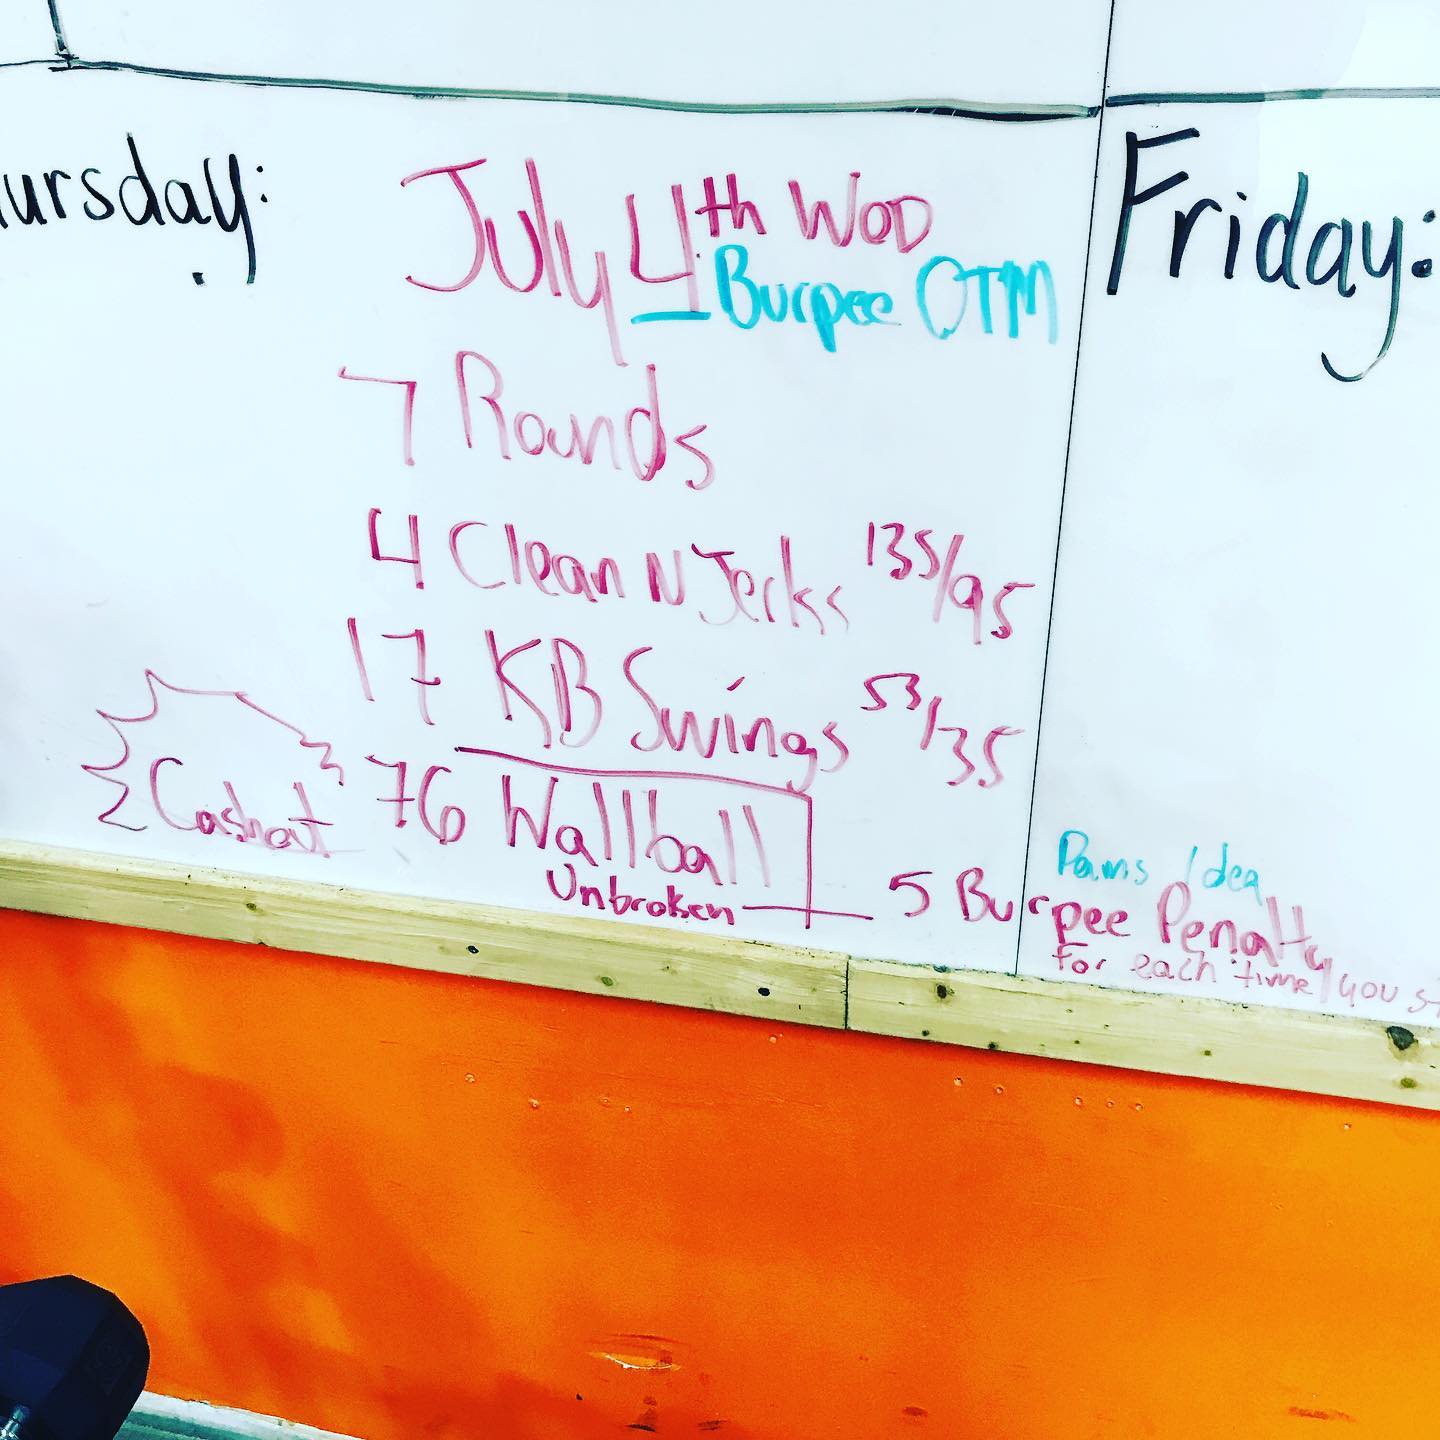 ursday:
July 4th WOD
Burpee OTM
7 Rounds
4 Clean N Jerks 135/95
17 KB Swings 53/35
Cashout 76 Wallball
Unbroken
5 Burpee Penalty
for each time you st
Pams Idea
Friday: